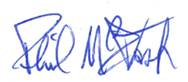 Phil McIntosh